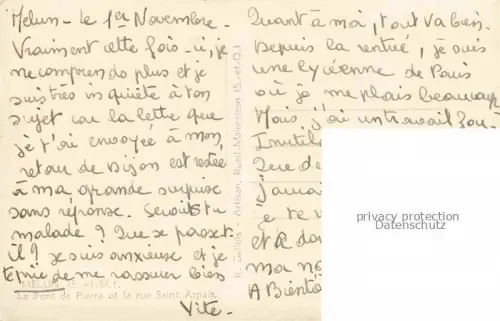 Melun - Le 1er Novembre -
Vraiment cette fois-ci, je
ne comprend plus et je
suis très inquiète à ton
sujet car la lettre que
je t'ai envoyée à mon
retour de Dijon est restée
à ma grande surprise
sans réponse. Serais tu
malade ? Que se passet
il ? Je suis anxieuse et je
te prie de me rassurer bien
Vite -
MELUN (S.-et-M.)
Le Pont de Pierre et la rue Saint Aspais
Rueil-Malmaison (S.-et-O.)
Quant à moi, tout va bien.
Depuis la rentrée, je suis
une lycéenne de Paris
où je me plais beaucoup
Mais j'ai un travail fou -
Inutile
Que de
jamai
je te
et
ma
A Bientô
privacy protection
Datenschutz